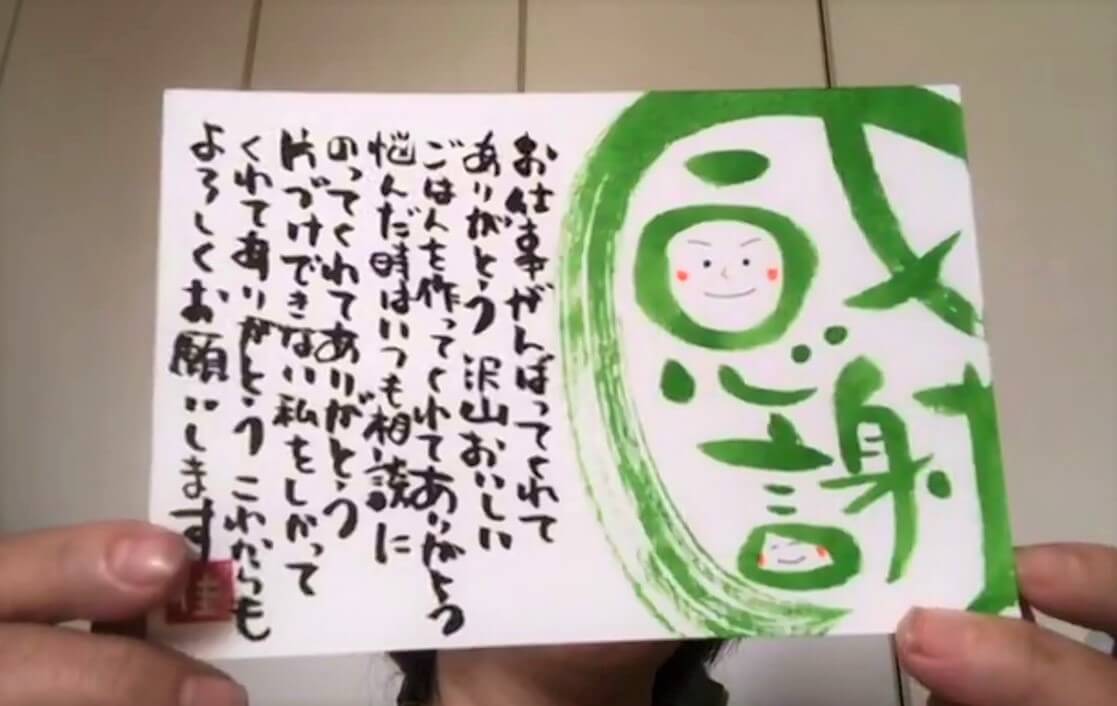 感謝
お仕事がんばってくれて
ありがとう 沢山おいしい
ごはんを作ってくれてありがとう
悩んだ時はいつも相談に
のってくれてありがとう
片づけできない私をしかって
くれてありがとう これからも
よろしくお願いします